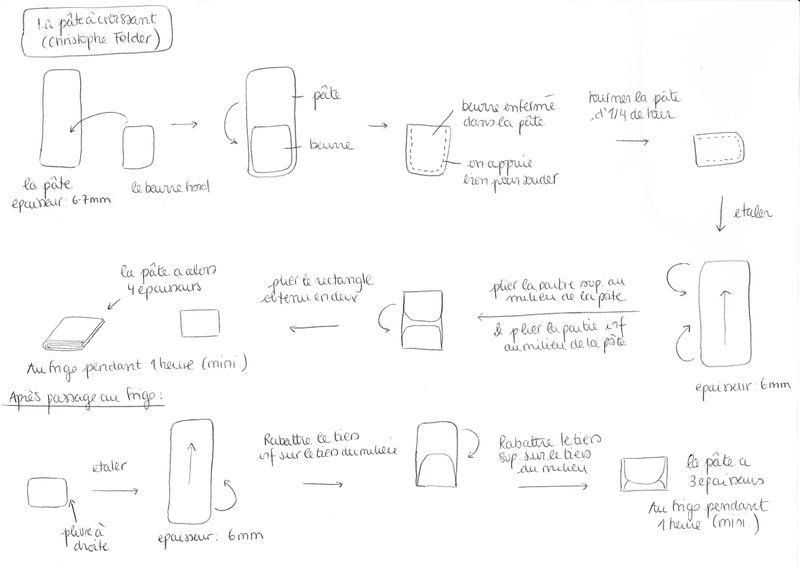 La pâte à croissant
(Christophe Felder)
la pâte
epaisseur: 6-7mm
le beurre froid
pâte
beurre
beurre enfermé
dans la pâte
on appuie
bien pour souder
tourner la pâte
d'1/4 de tour
etaler
epaisseur: 6mm
plier la partie sup. au
milieu de la pâte
& plier la partie inf
au milieu de la pâte
plier le rectangle
obtenu en deux
la pâte a alors
4 epaisseurs
Au frigo pendant 1 heure (mini)
Après passage au frigo:
pliure à
droite
etaler
epaisseur: 6mm
Rabattre le tiers
inf sur le tiers du milieu
Rabattre le tiers
sup. sur le tiers
du milieu
la pâte a
3 epaisseurs
Au frigo pendant
1 heure (mini.)